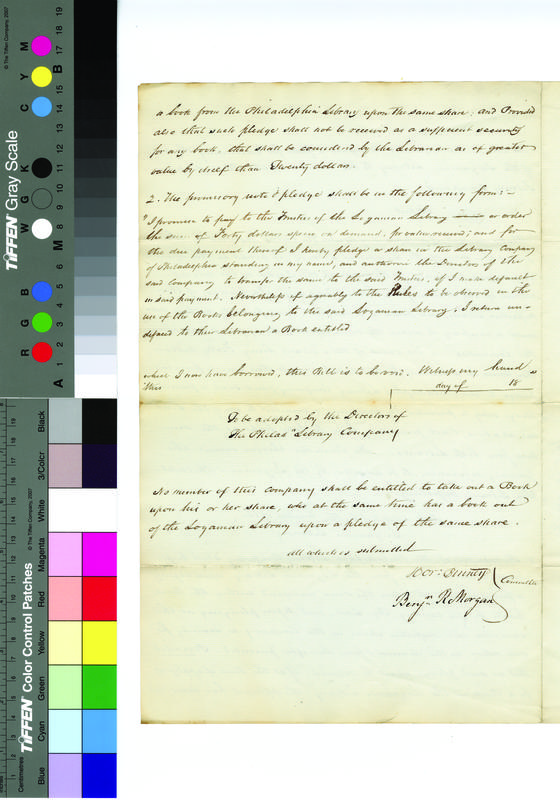 a book from the Philadelphia Library upon the same share; and Provided
also that such pledge shall not be received as a sufficient security
for any book, that shall be considered by the Librarian as of greater
value by itself than Twenty dollars.
2. The promissory note & pledge shall be in the following form:-
"I promise to pay to the Trustees of the Loganian Library or order
the sum of Forty dollars specie on demand, for value received; and for
the due payment thereof I hereby pledge a share in the Library Company
of Philadelphia standing in my name, and authorize the Directors of the
said Company to transfer the same to the said Trustees, if I make default
in said payment. Nevertheless if agreeably to the Rules to be observed in the
use of the Books belonging to the said Loganian Library, I return un-
defaced to their Librarian a Book entitled
which I now have borrowed, this Bill is to be void. Witness my hand
this day of 18
To be adopted by the Directors of
The Philada Library Company
No member of this company shall be entitled to take out a Book
upon his or her share, who at the same time has a book out
of the Loganian Library upon a pledge of the same share.
all which is submitted
Hor: Binney
Committee
Benjn R Morgan
TIFFEN Gray Scale
© The Tiffen Company, 2007
R G B W G K C Y M
A 1 2 3 4 5 6 M 8 9 10 11 12 13 14 15 B 17 18 19
TIFFEN Color Control Patches
© The Tiffen Company, 2007
Centimetres
Blue Cyan Green Yellow Red Magenta White 3/Color Black